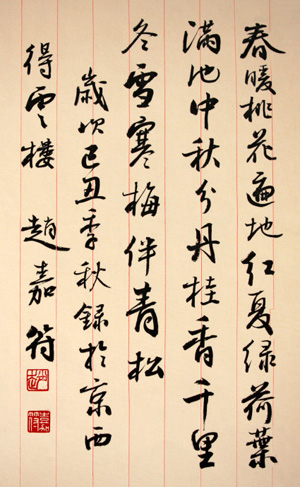 春暖桃花遍地红夏绿荷叶
满池中秋分丹桂香千里
冬雪寒梅伴青松
歲次己丑季秋録於京西
得雲樓 趙嘉符